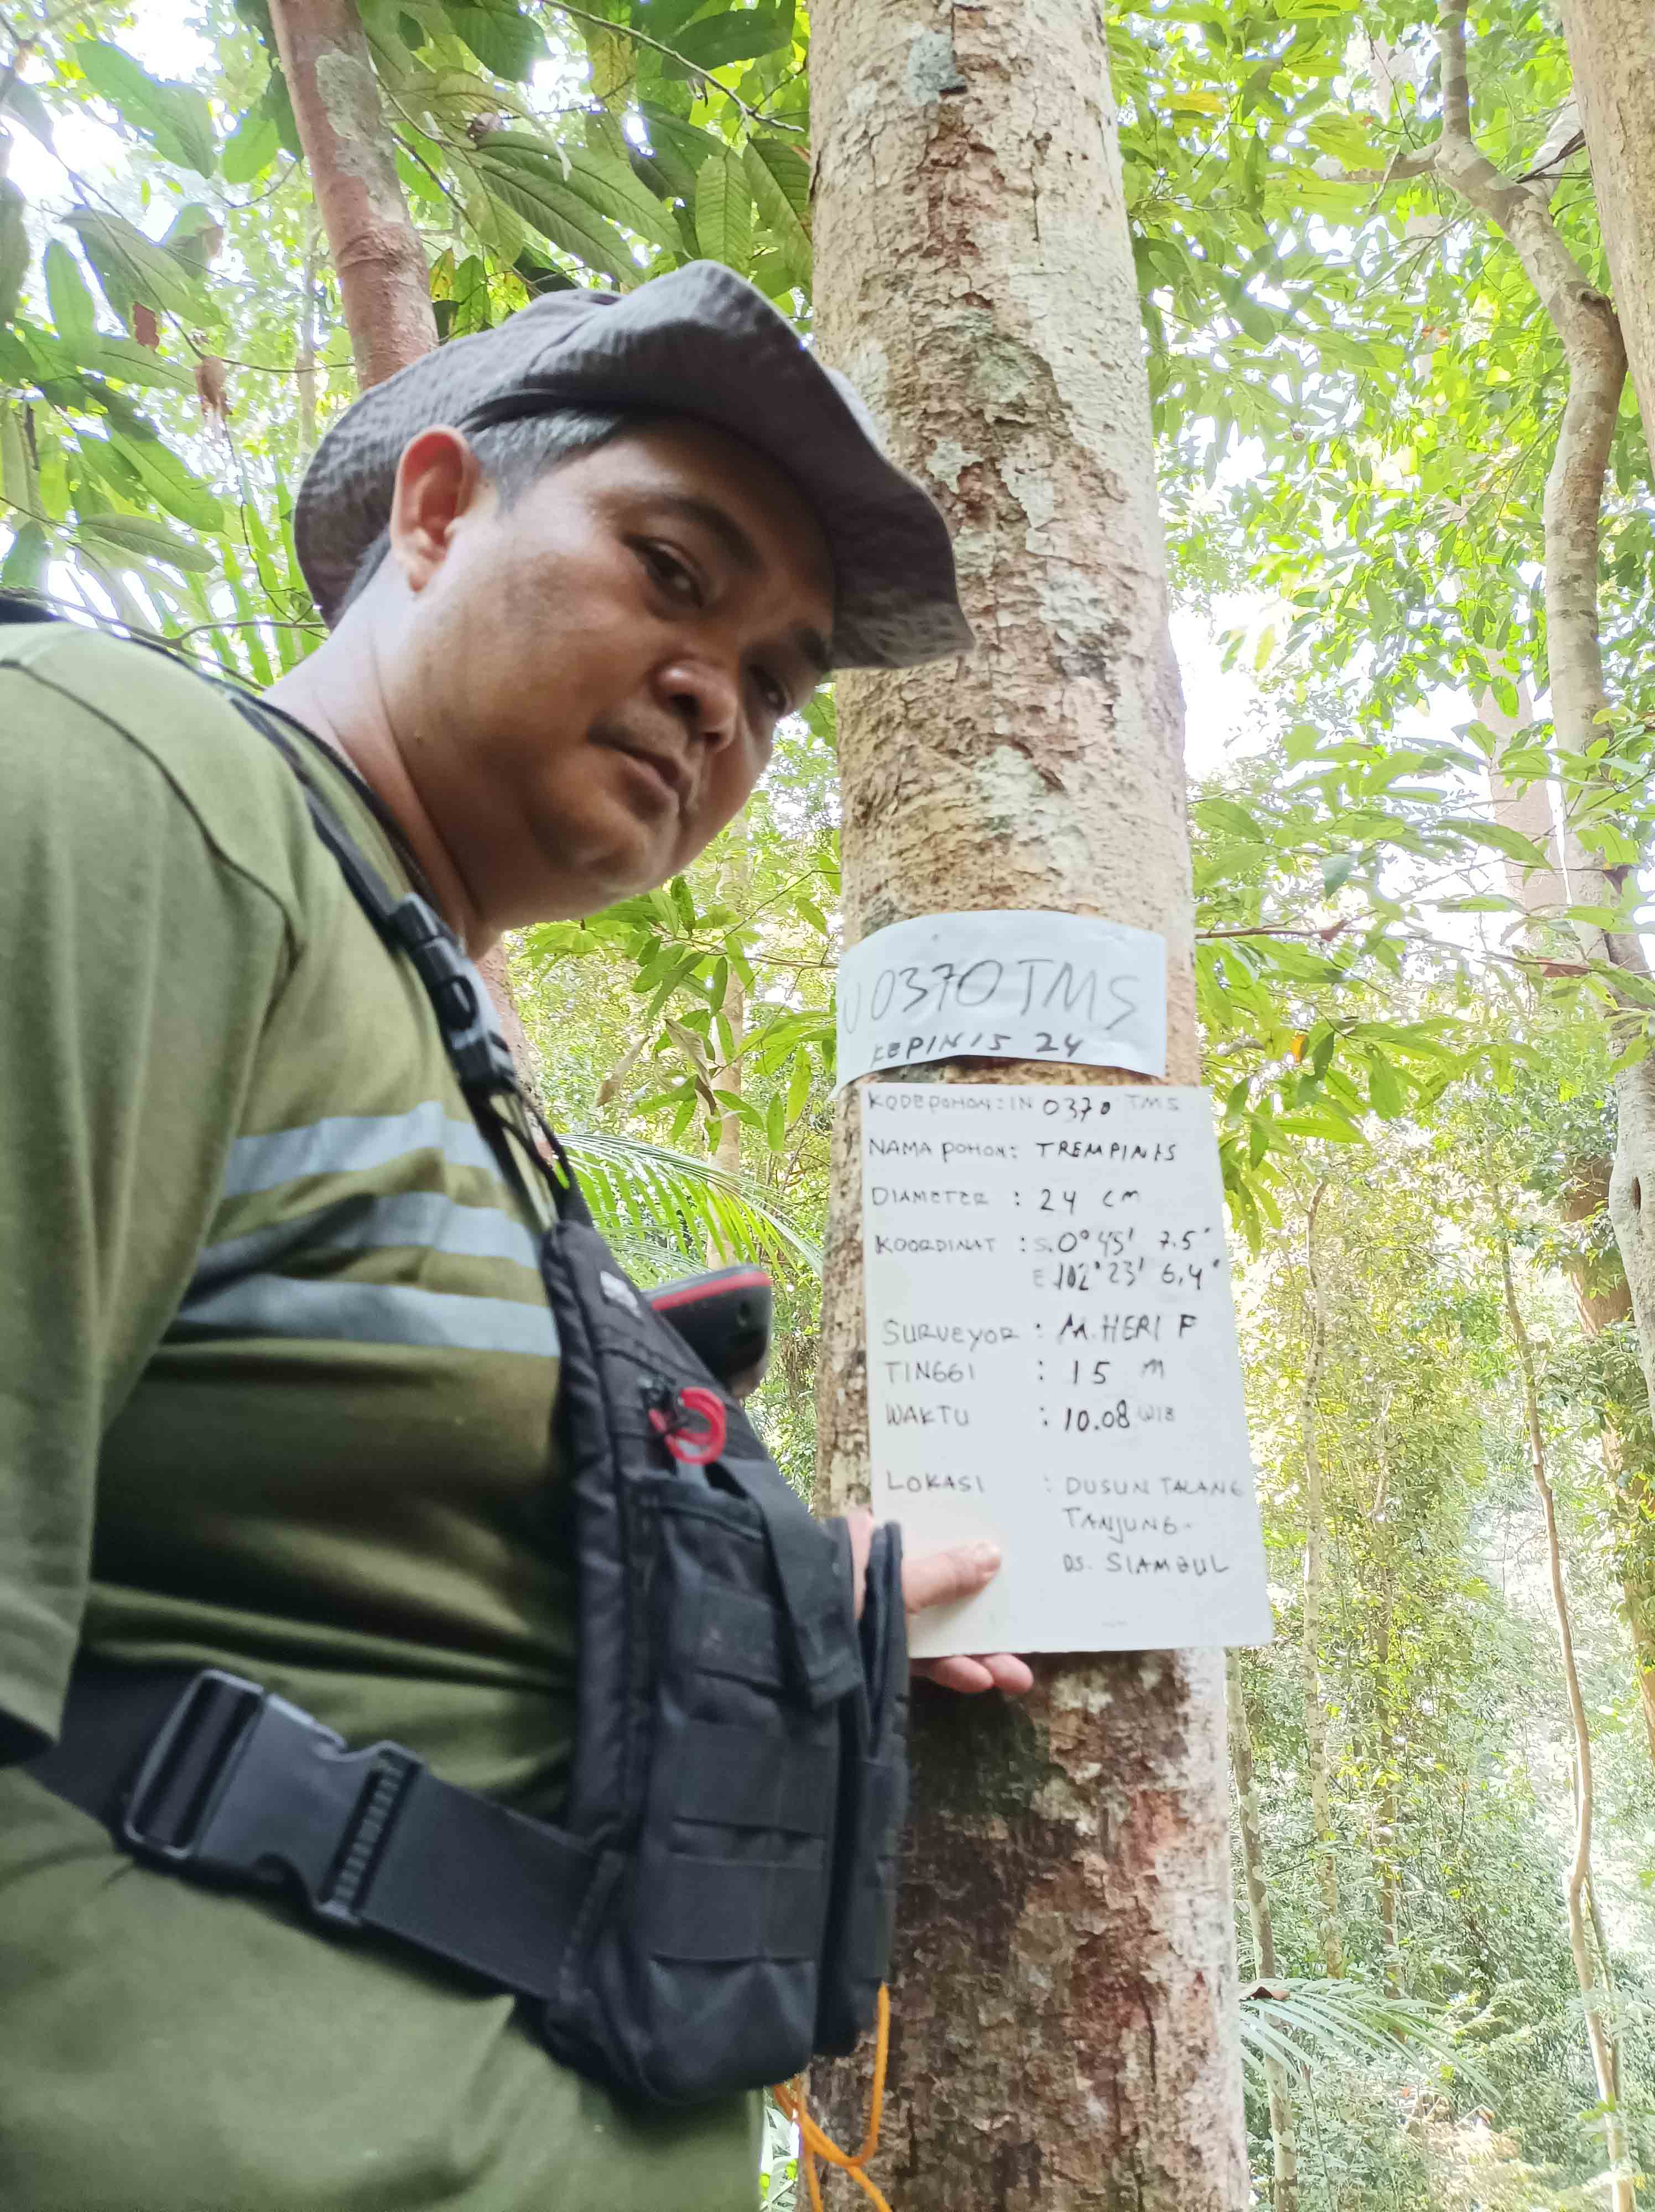 00370 TMS
KEPINIS 24
KODE POHON : IN 0370 TMS
NAMA POHON : TREMPINIS
DIAMETER : 24 CM
KOORDINAT : S. 0° 45' 7.5"
E. 102° 23' 6,4"
SURVEYOR : M. HERI F
TINGGI : 15 M
WAKTU : 10.08 WIB
LOKASI : DUSUN TALANG
TANJUNG-
DS. SIAMBUL